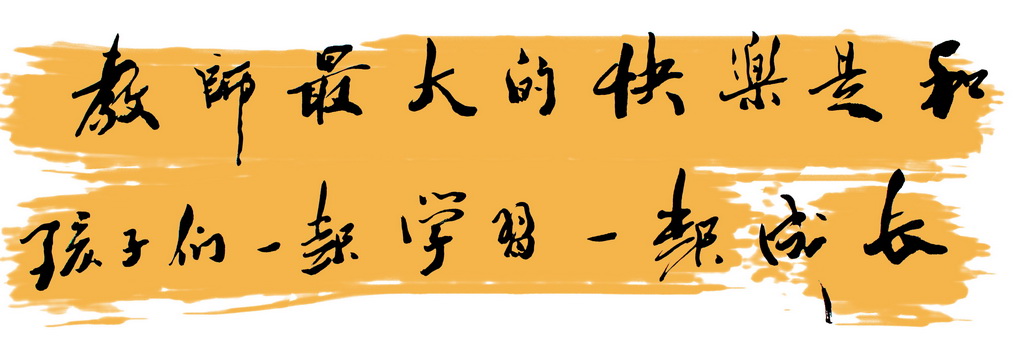 教師最大的快樂是和
孩子们一起学習一起成长